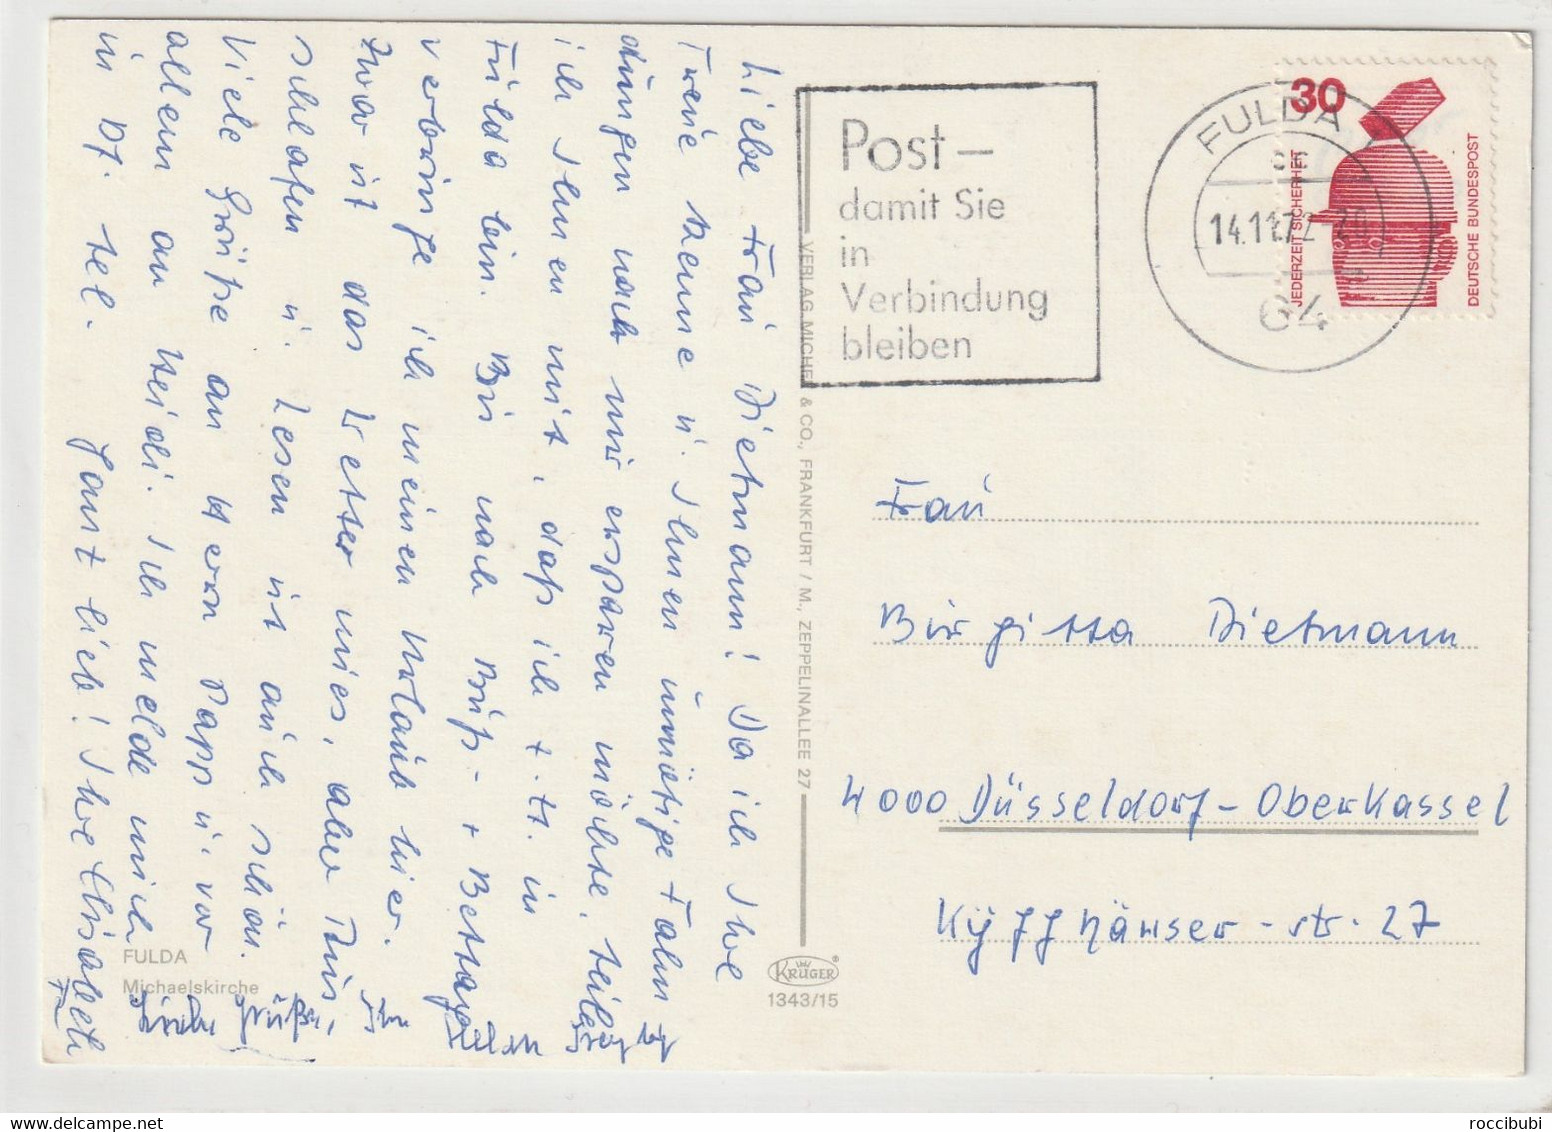 Liebe Frau Dietmann! Da ich Ihre
Treue kenne u. Ihnen unnötige Fahn
dungen nach mir ersparen möchte, teile
ich Ihnen mit, daß ich z. Zt. in
Fulda bin. Bis nach Buß- + Bettag
verbringe ich meinen Urlaub hier.
Zwar ist das Wetter mies, aber Aus
schlafen u. Lesen ist auch schön.
Viele Grüße an Herrn Papp u. vor
allem an Heidi. Ich melde mich
in Df. tel. Ganz lieb! Ihre Elisabeth
Grüße, Ihr
FULDA
Michaelskirche
VERLAG MICHEL & CO., FRANKFURT / M., ZEPPELINALLEE 27
KRÜGER
1343/15
Post –
damit Sie
in
Verbindung
bleiben
FULDA
14.11.72 20
64
30
JEDERZEIT SICHERHEIT
DEUTSCHE BUNDESPOST
Frau
Birgitta Dietmann
4000 Düsseldorf-Oberkassel
Kyffhäuser-str. 27
delcampe.net
roccibubi